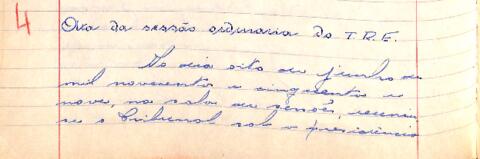 4
Ata da sessão ordinaria do T.R.E.
No dia oito de junho de
mil novecentos e cinquenta e
nove, na sala de sessões, reuniu-
se o Tribunal sob a presidência